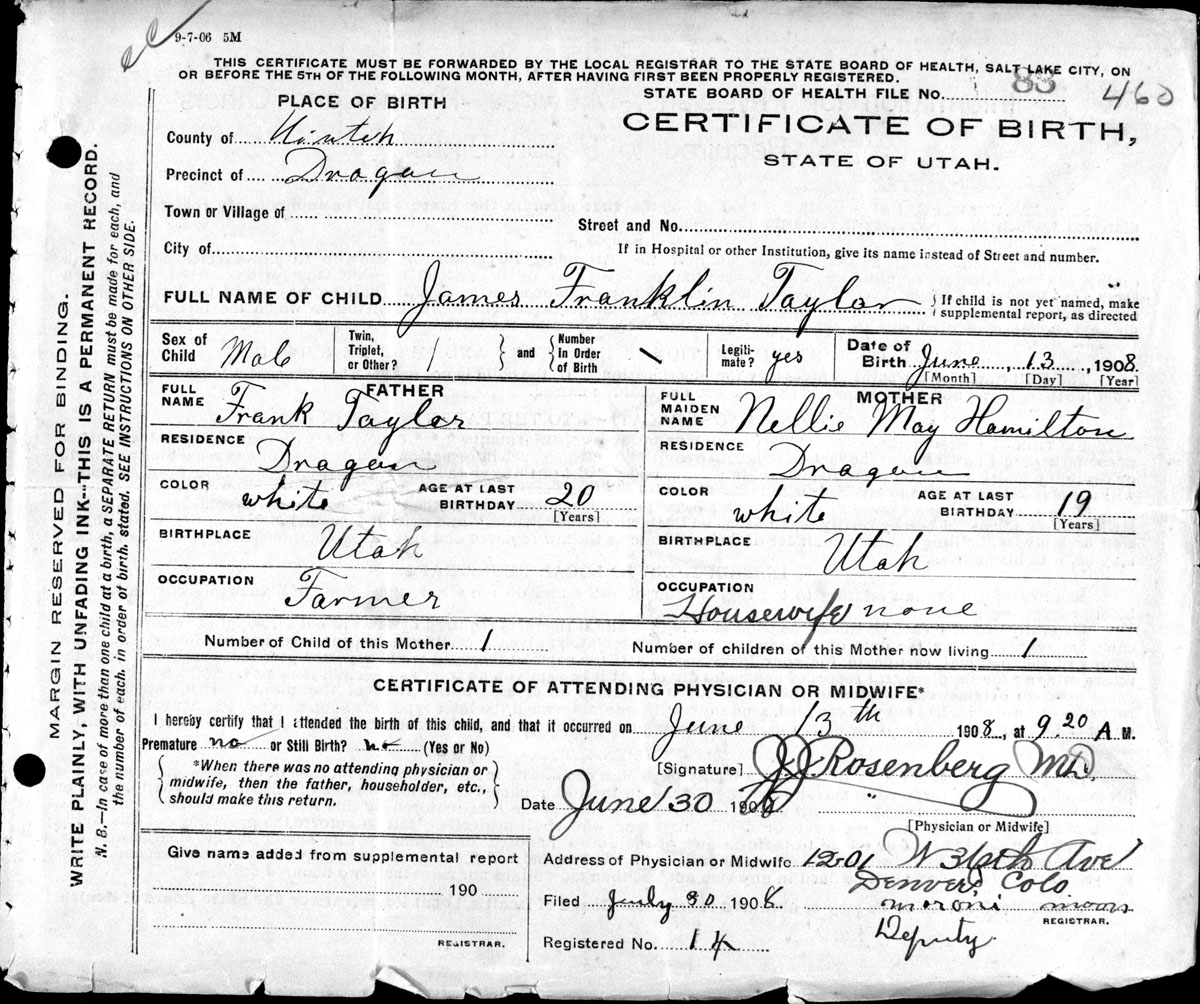 9-7-06 5M
THIS CERTIFICATE MUST BE FORWARDED BY THE LOCAL REGISTRAR TO THE STATE BOARD OF HEALTH, SALT LAKE CITY, ON
OR BEFORE THE 5TH OF THE FOLLOWING MONTH, AFTER HAVING FIRST BEEN PROPERLY REGISTERED.
PLACE OF BIRTH
STATE BOARD OF HEALTH FILE No. 83 460
County of Uintah
CERTIFICATE OF BIRTH,
STATE OF UTAH.
Precinct of Dragon
Town or Village of
Street and No.
City of
If in Hospital or other Institution, give its name instead of Street and number.
FULL NAME OF CHILD James Franklin Taylor } If child is not yet named, make supplemental report, as directed
Sex of Child Male Twin, Triplet, or Other? / and { Number in Order of Birth \ Legiti-mate? yes Date of Birth June, 13, 1908
[Month] [Day] [Year]
FATHER
FULL NAME Frank Taylor
RESIDENCE Dragon
COLOR white AGE AT LAST BIRTHDAY 20
[Years]
BIRTHPLACE Utah
OCCUPATION Farmer
MOTHER
FULL MAIDEN NAME Nellie May Hamilton
RESIDENCE Dragon
COLOR white AGE AT LAST BIRTHDAY 19
[Years]
BIRTHPLACE Utah
OCCUPATION
Housewife none
Number of Child of this Mother 1
Number of children of this Mother now living 1
CERTIFICATE OF ATTENDING PHYSICIAN OR MIDWIFE*
I hereby certify that I attended the birth of this child, and that it occurred on June 13th 1908, at 9 20 A M.
Premature no or Still Birth? no (Yes or No)
{ *When there was no attending physician or midwife, then the father, householder, etc., should make this return. }
[Signature] J J Rosenberg MD.
Date June 30 190
[Physician or Midwife]
Give name added from supplemental report
190
REGISTRAR.
Address of Physician or Midwife 1201 W 36th Ave
Denver, Colo
Filed July 30 1908 Moroni
REGISTRAR.
Deputy
Registered No. 14
MARGIN RESERVED FOR BINDING.
WRITE PLAINLY, WITH UNFADING INK--THIS IS A PERMANENT RECORD.
N. B.—In case of more than one child at a birth, a SEPARATE RETURN must be made for each, and
the number of each, in order of birth, stated. SEE INSTRUCTIONS ON OTHER SIDE.